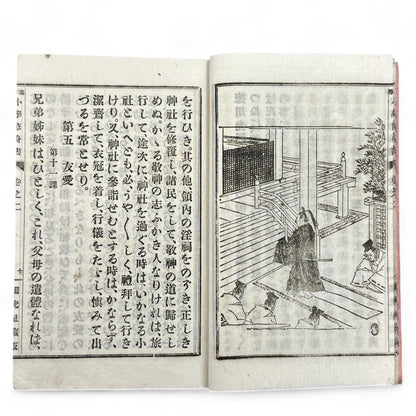 を行ひき、其の他領内の淫祠をのぞき、正しき
神社を修復し、諸民をして、敬神の道に歸せし
めぬ、かゝる敬神の志ふかき人なりければ、旅
行して、途次に、神社を過ぐる時は、いかなる小
社といへども、必、うや〳〵しく、禮拜して行き
けり、又、神社に參詣せむとする時は、かならず、
潔齋して、衣服を着し、行儀をたゞし、愼みて出
づるを常とせり、
第五 友愛
第十一課
兄弟姉妹は、ひとしくこれ、父母の遺體なれば、
小學修身書
卷之二
十一
國光社藏版